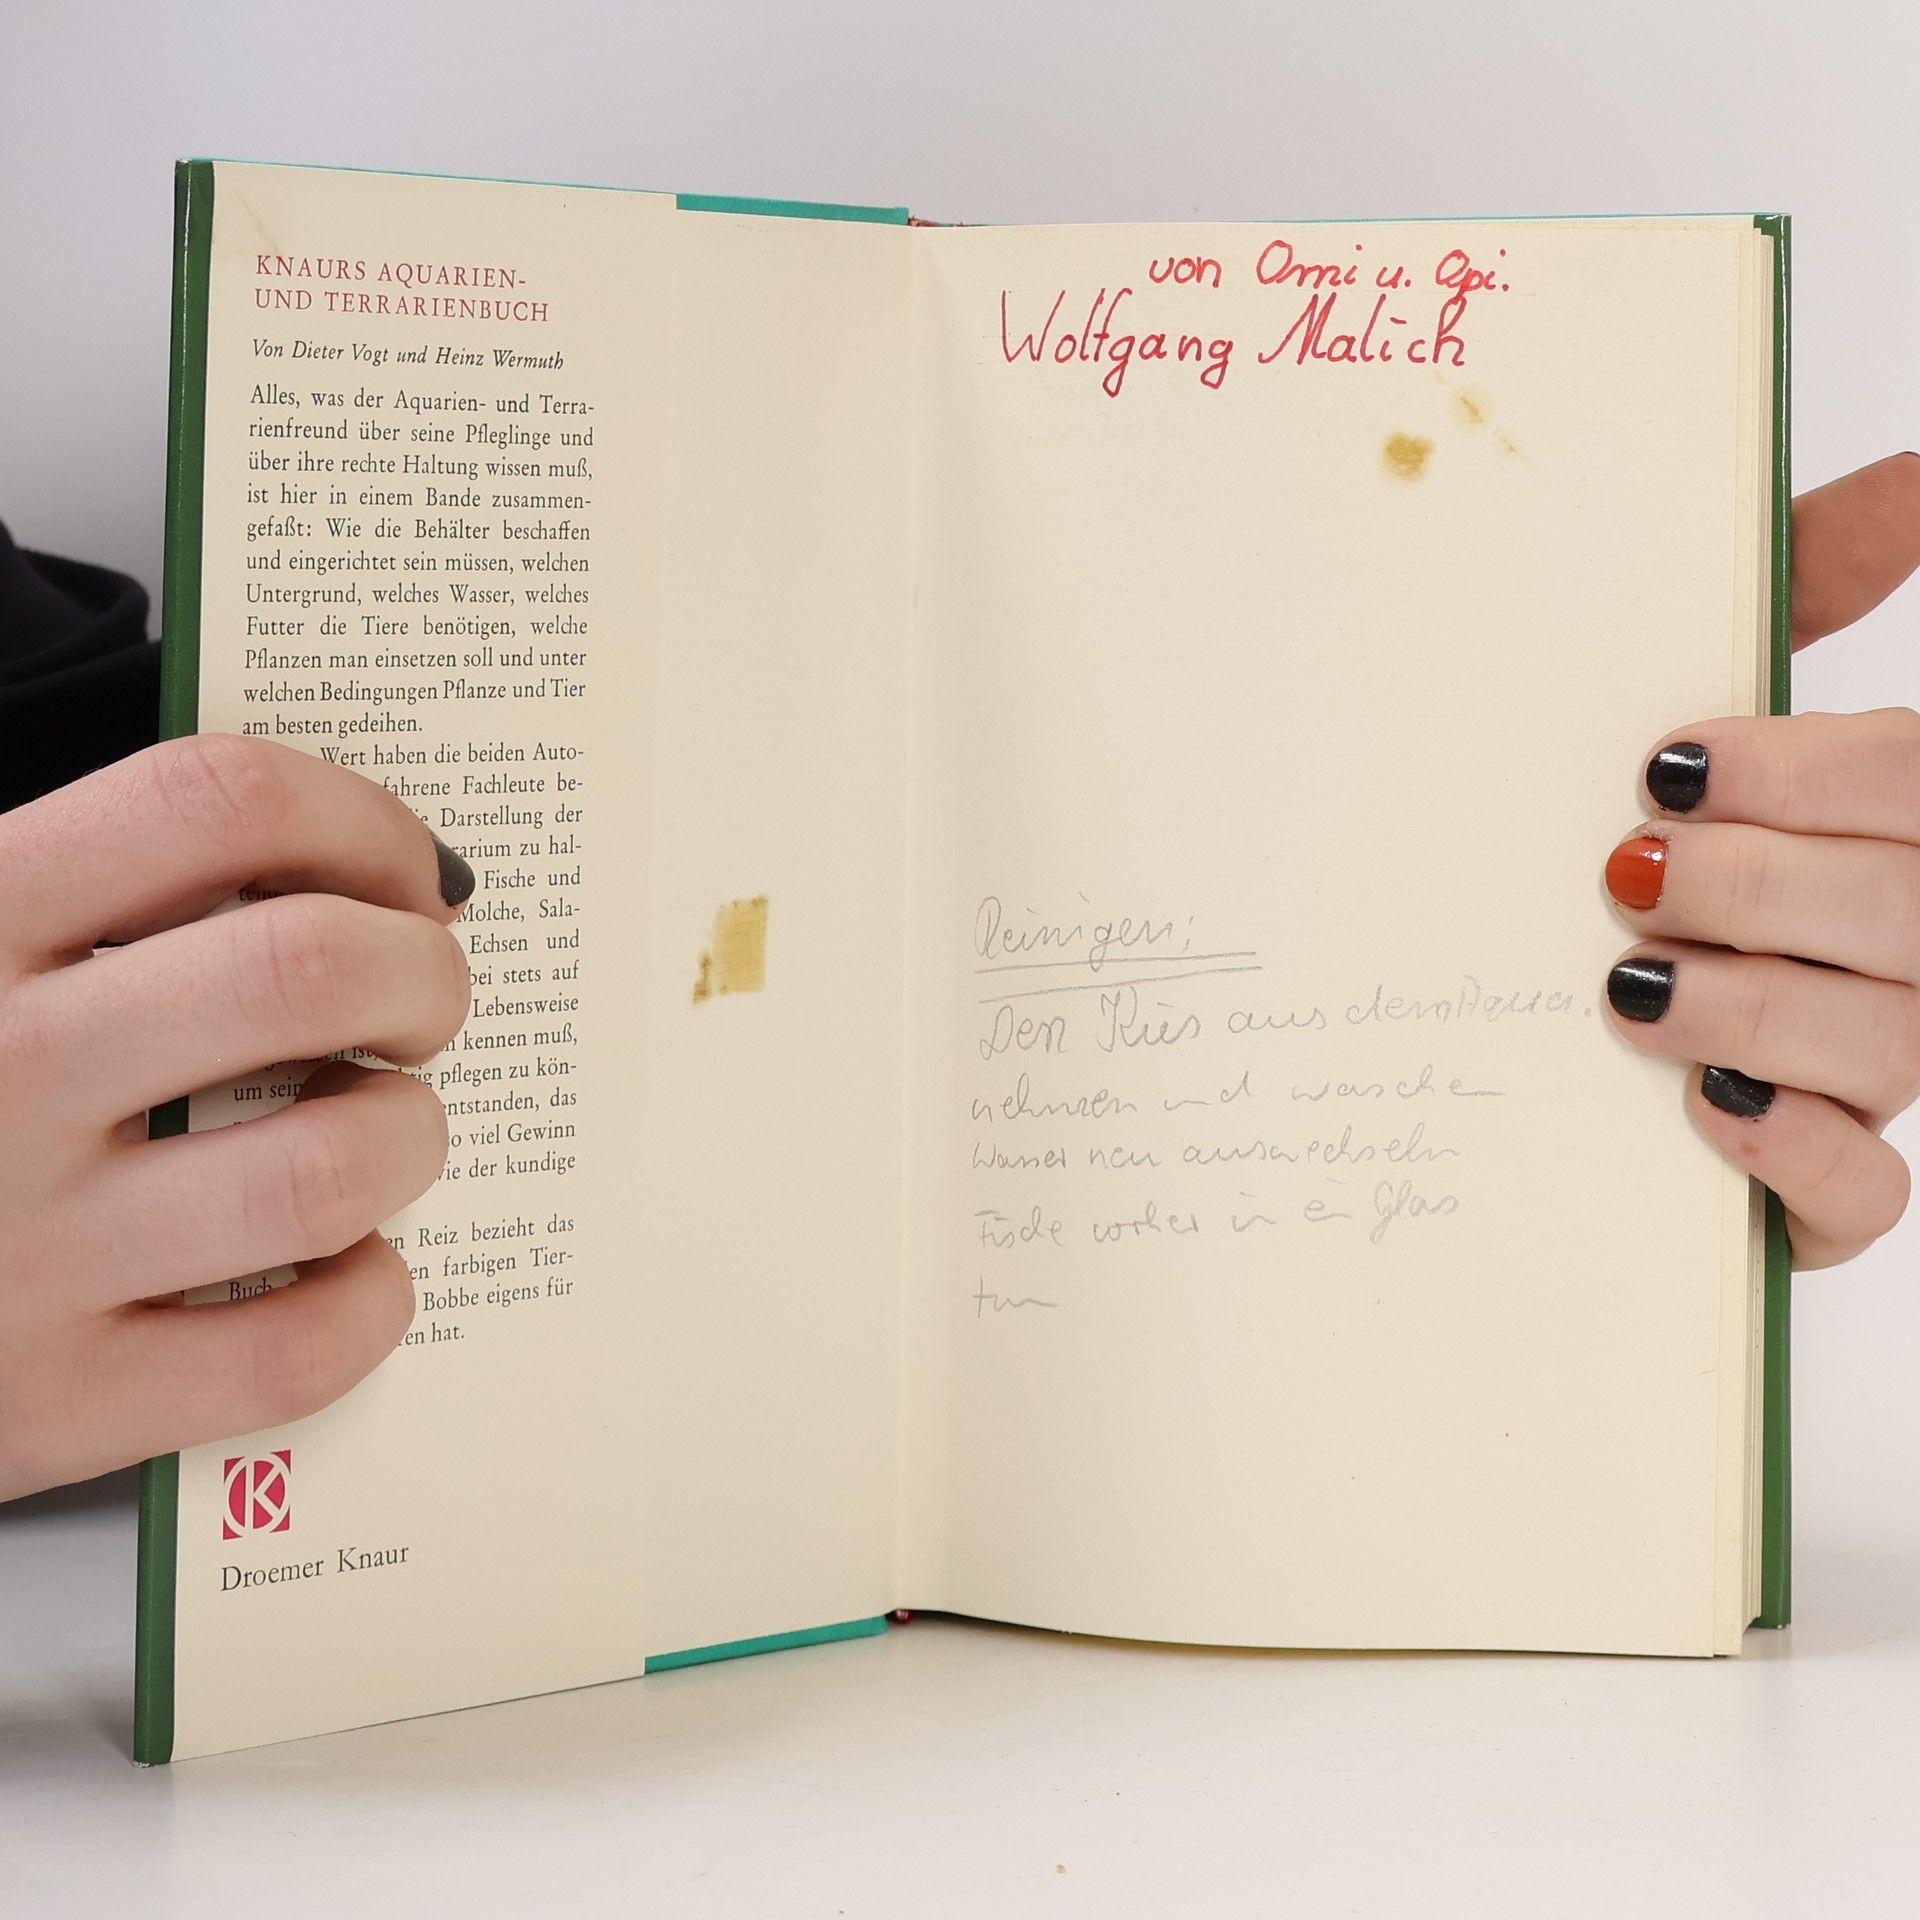 KNAURS AQUARIEN-
UND TERRARIENBUCH
Von Dieter Vogt und Heinz Wermuth
Alles, was der Aquarien- und Terra-
rienfreund über seine Pfleglinge und
über ihre rechte Haltung wissen muß,
ist hier in einem Bande zusammen-
gefaßt: Wie die Behälter beschaffen
und eingerichtet sein müssen, welchen
Untergrund, welches Wasser, welches
Futter die Tiere benötigen, welche
Pflanzen man einsetzen soll und unter
welchen Bedingungen Pflanze und Tier
am besten gedeihen.
Wert haben die beiden Auto-
fahrene Fachleute be-
Darstellung der
rarium zu hal-
Fische und
Molche, Sala-
Echsen und
bei stets auf
Lebensweise
kennen muß,
um sein pflegen zu kön-
entstanden, das
so viel Gewinn
wie der kundige
en Reiz bezieht das
Buch farbigen Tier-
Bobbe eigens für
hat.
K
Droemer Knaur
von Omi u. Opi.
Wolfgang Malich
Reinigen:
Den Kies aus dem Aqua.
nehmen und waschen
Wasser neu auswechseln
Fische vorher in ein Glas
tun